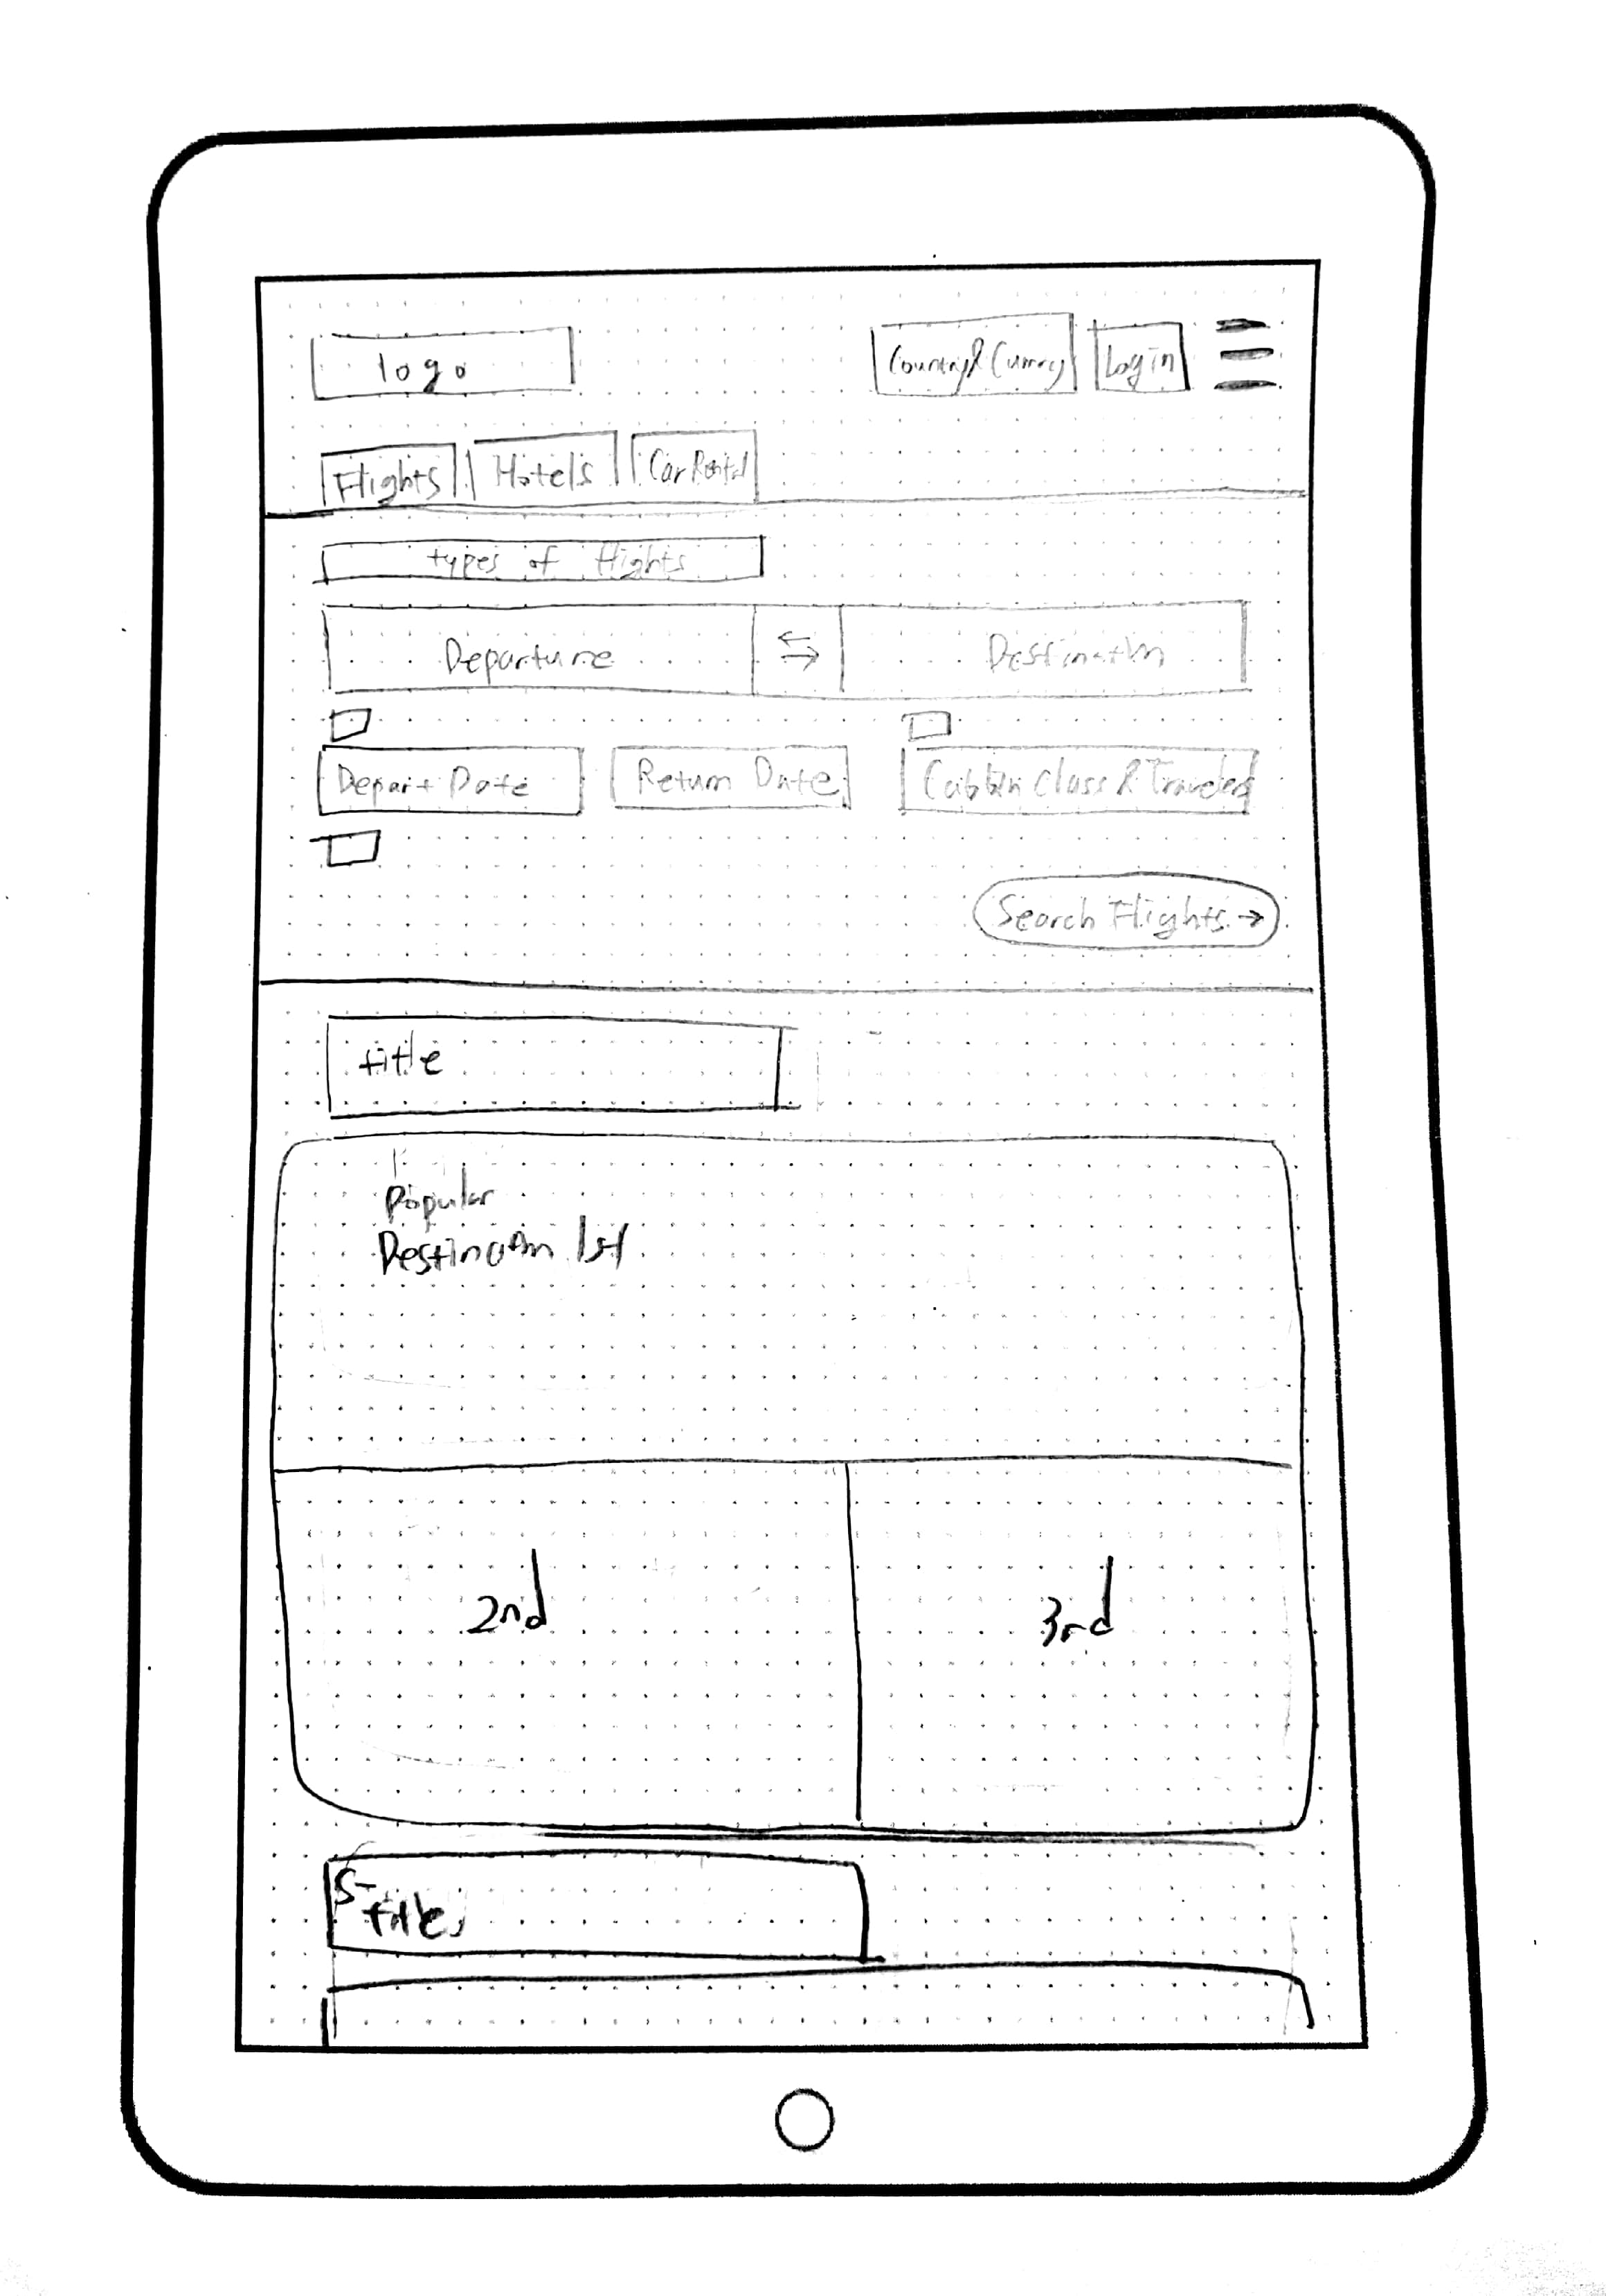 logo
Country & Currency
Log in
Flights
Hotels
Car Rental
types of flights
Departure
Destination
Depart Date
Return Date
Cabbin Class & Travelers
Search Flights →
title
Popular
Destination list
2nd
3rd
S-
title